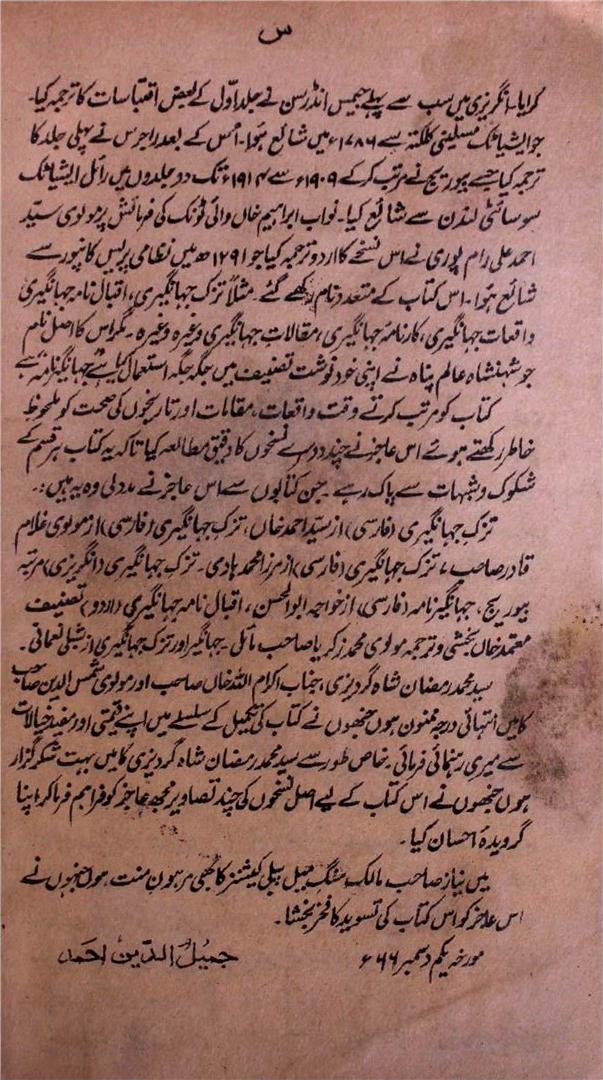 س
کرایا۔ انگریزی میں سب سے پہلے جیمس انڈرسن نے جلد اوّل کے بعض اقتباسات کا ترجمہ کیا۔
جو ایشیاٹک مسلینی کلکتہ سے ۱۷۸۶ء میں شائع ہُوا۔ اُس کے بعد راجرس نے پہلی جلد کا
ترجمہ کیا جسے بیوریج نے مرتب کر کے ۱۹۰۹ء سے ۱۹۱۴ء تک دو جلدوں میں رائل ایشیاٹک
سوسائٹی لندن سے شائع کیا۔ نواب ابراہیم خاں والئ ٹونک کی فرمائش پر مولوی سیّد
احمد علی رام پوری نے اس نسخے کا اردو ترجمہ کیا جو ۱۲۹۱ھ میں نظامی پریس کانپور سے
شائع ہُوا۔ اس کتاب کے متعدد نام رکھے گئے۔ مثلاً تزک جہانگیری، اقبال نامہ جہانگیری
واقعات جہانگیری، کارنامۂ جہانگیری، مقالات جہانگیری وغیرہ وغیرہ۔ مگر اس کا اصل نام
جو شہنشاہ عالم پناہ نے اپنی خود نوشت تصنیف میں جگہ جگہ استعمال کیا ہے "جہانگیر نامہ" ہے
کتاب کو مرتب کرتے وقت واقعات، مقامات اور تاریخوں کی صحت کو ملحوظِ
خاطر رکھتے ہوئے اس عاجز نے چند دوسرے نسخوں کا دقیق مطالعہ کیا تاکہ یہ کتاب ہر قسم کے
شکوک و شبہات سے پاک رہے۔ جن کتابوں سے اس عاجز نے مدد لی وہ یہ ہیں:۔
تزک جہانگیری (فارسی) از سیّد احمد خاں، تزک جہانگیری (فارسی) از مولوی غلام
قادر صاحب، تزک جہانگیری (فارسی) از مرزا محمد ہادی۔ تزکِ جہانگیری (انگریزی) مرتبہ
بیوریج، جہانگیر نامہ (فارسی) از خواجہ ابوالحسن، اقبال نامہ جہانگیری (اردو) تصنیف
معتمد خاں بخشی و ترجمہ مولوی محمد زکریا صاحب مائل۔ جہانگیر اور تزک جہانگیری از شبلی نعمانی۔
سید محمد رمضان شاہ گردیزی، جناب اکرام اللہ خاں صاحب اور مولوی شمس الدین صاحب
کا میں انتہائی درجہ ممنون ہوں جنھوں نے کتاب کی تکمیل کے سلسلے میں اپنے قیمتی اور مفید خیالات
سے میری رہنمائی فرمائی۔ خاص طور سے سید محمد رمضان شاہ گردیزی کا میں بہت شکر گزار
ہوں جنھوں نے اس کتاب کے لیے اصل نسخوں کی چند تصاویر مجھ عاجز کو فراہم فرما کر اپنا
گرویدۂ احسان کیا۔
میں نیاز صاحب مالک سنگ میل پبلی کیشنز کا بھی مرہونِ منت ہوں جنہوں نے
اس عاجز کو اس کتاب کی تسوید کا فخر بخشا۔
مورخہ یکم دسمبر ۶۶ء
جمیل الدّین احمد